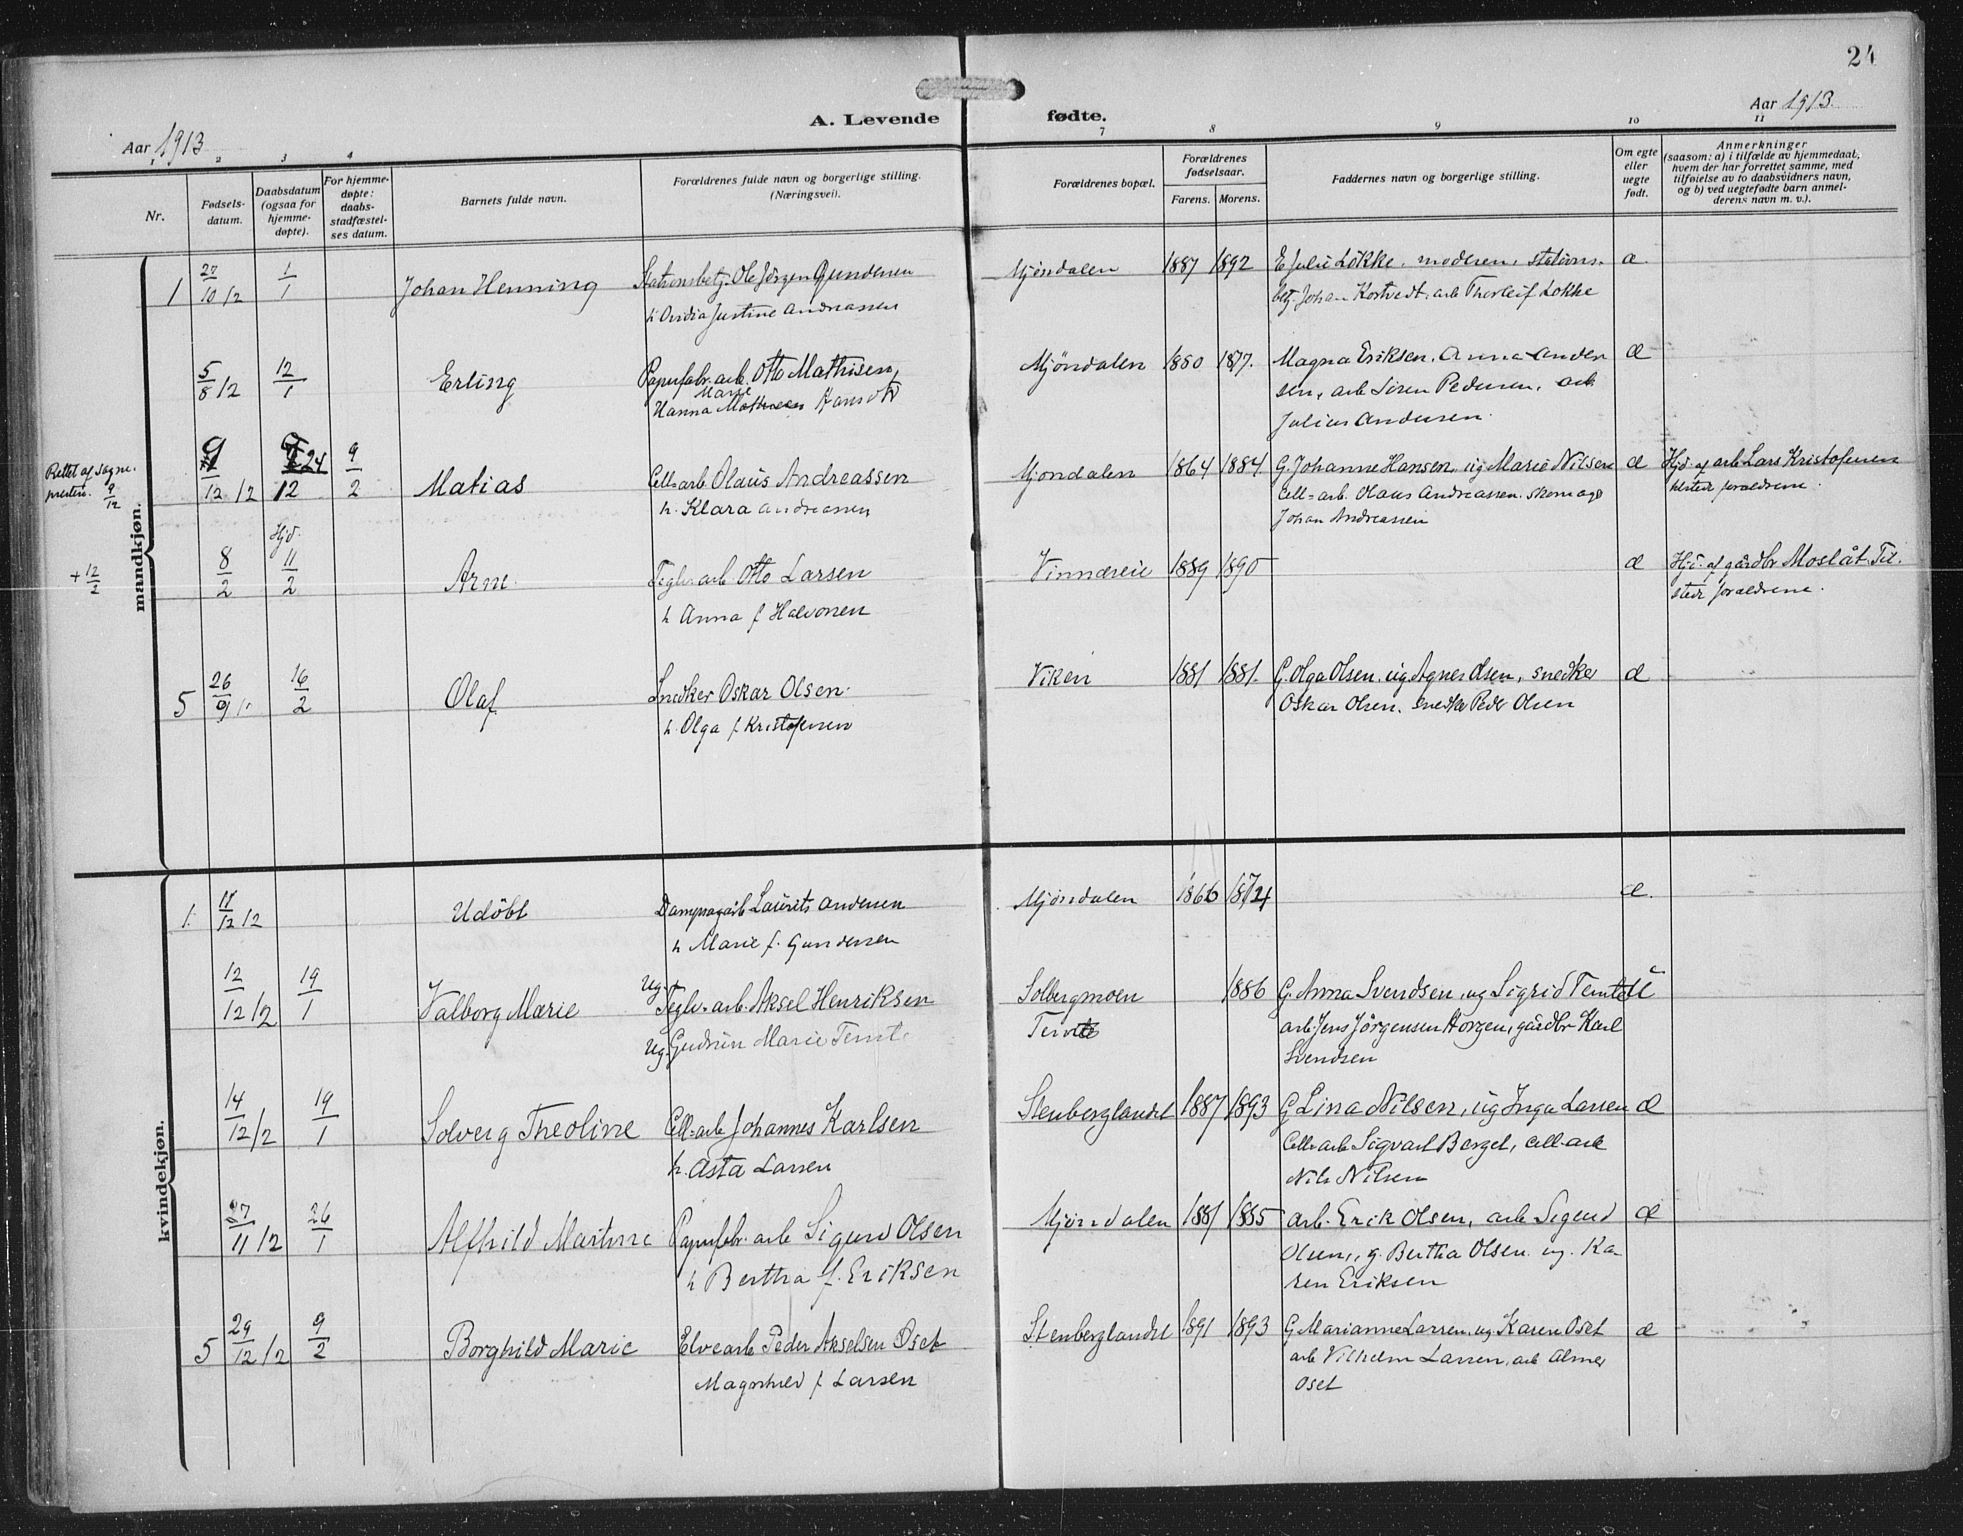 24
A. Levende fødte.
Aar 1913
Aar 1913.
1 2 3 4 7 8 9 10 11
Nr.
Fødsels-datum.
Daabsdatum (ogsaa for hjemme-døpte).
For hjemme-døpte: daabs-stadfæstel-ses datum.
Barnets fulde navn.
Forældrenes fulde navn og borgerlige stilling. (Næringsvei).
Forældrenes bopæl.
Forældrenes fødselsaar.
Farens. Morens.
Faddernes navn og borgerlige stilling.
Om egte eller uegte født.
Anmerkninger
(saasom: a) i tilfælde av hjemmedaab,
hvem der har forrettet samme, med
tilføielse av to daabsvidners navn,
og b) ved uegtefødte barn anmel-
derens navn m. v.).
mandkjøn.
1 27/10 12 1/1 Johan Henning Stationsbetj. Ole Jørgen Gundersen Mjöndalen 1887 1892 E Julie Lökke. moderen, stations-
betj. Johan Kortvedt. arb Thorleif Lökke
h. Justine Andreassen
5/8 12 12/1 Erling Papirfabr. arb. Otto Mathisen, Mjöndalen 1880 1877. Magna Eriksen. Anna Ander
sen, arb Sören Pedersen, arb
Julius Andersen.
Hanna Marie
Rettet af sogne-
presten. 9/12
12/12 9/2 Matias Cell-arb Olaus Andreassen Mjondalen 1864 1884 G. Johanne Hansen, ug Marie Nilsen æ Hjd. af arb Lars Kristofersen
h. Klara Andreassen
Cell-arb. Olaus Andreassen. skomager
Johan Andreassen
tilstede forældrene.
+ 12/2
8/2 Hjd. 11/2 Arne Teglv. arb Otto Larsen 1889 1890 æ Hjd. af gårdbr Moslåt. Til-
stede forældrene.
h Anna f Halvorsen
5 26/9 16/2 Olaf Snedker Oskar Olsen. Viken 1881 1881. G. Olga Olsen. ug Agnes Olsen, snedker æ
h. Olga f Kristofersen
Oskar Olsen. snedker Peder Olsen
kvindekjøn.
1. 11/12 12 Udöbt Laurits Andersen Mjöndalen 1866 1874 æ.
h Marie f. Gundersen
12/12 12 19/1 Valborg Marie Ug. Teglv. arb. Aksel Henriksen Solbergmoen 1886 G. Anna Svendsen, ug Sigrid
Ug. Gudrun Marie
arb. Jens Jörgensen Horgen, gårdbr Karl
Svendsen
14/12 12 19/1 Solveig Theoline Cell-arb Johannes Karlsen Stenberglandet 1887 1893 G Lina Nilsen, ug Inga Larsen æ
h. Asta Larsen
Cell-arb Sigvart Berget, cell-arb
Nils Nilsen
27/11 12 26/1 Alfhild Martine Papirfabr. arb Sigurd Olsen Mjöndalen 1881 1885 arb. Erik Olsen, arb Sigurd æ
h Bertha f. Eriksen
Olsen, g. Bertha Olsen. ug. Ka-
ren Eriksen
5 29/12 12 9/2 Borghild Marie Elvearb Peder Akselsen Oset Stenberglandet 1891 1893 G Marianne Larsen, ug Karen Oset æ
Magnhild f Larsen
arb Vilhelm Larsen, arb Almer
Oset